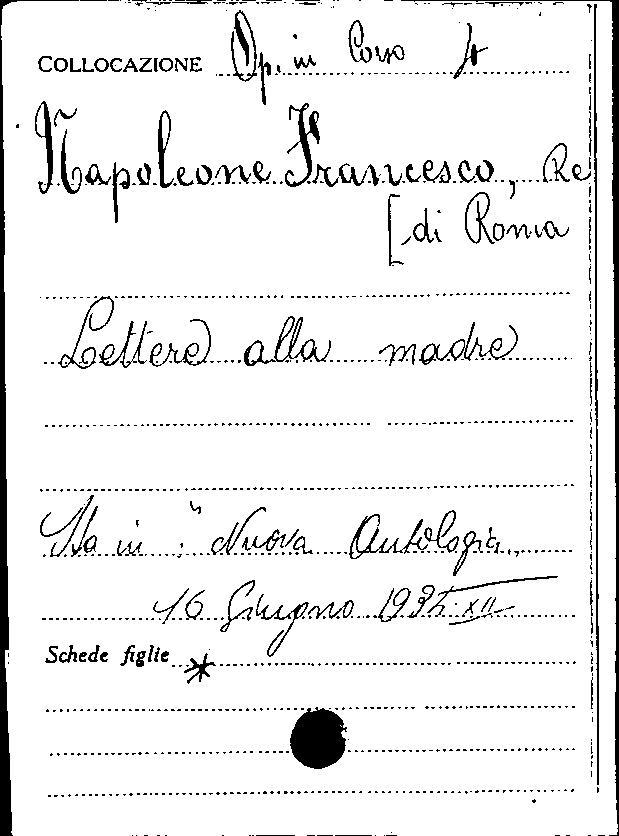 COLLOCAZIONE Op. in Corso
Napoleone Francesco, Re
[di Roma
Lettere alla madre
Sta in: "Nuova Antologia,,
16 Giugno 1935-XII
Schede figlie *